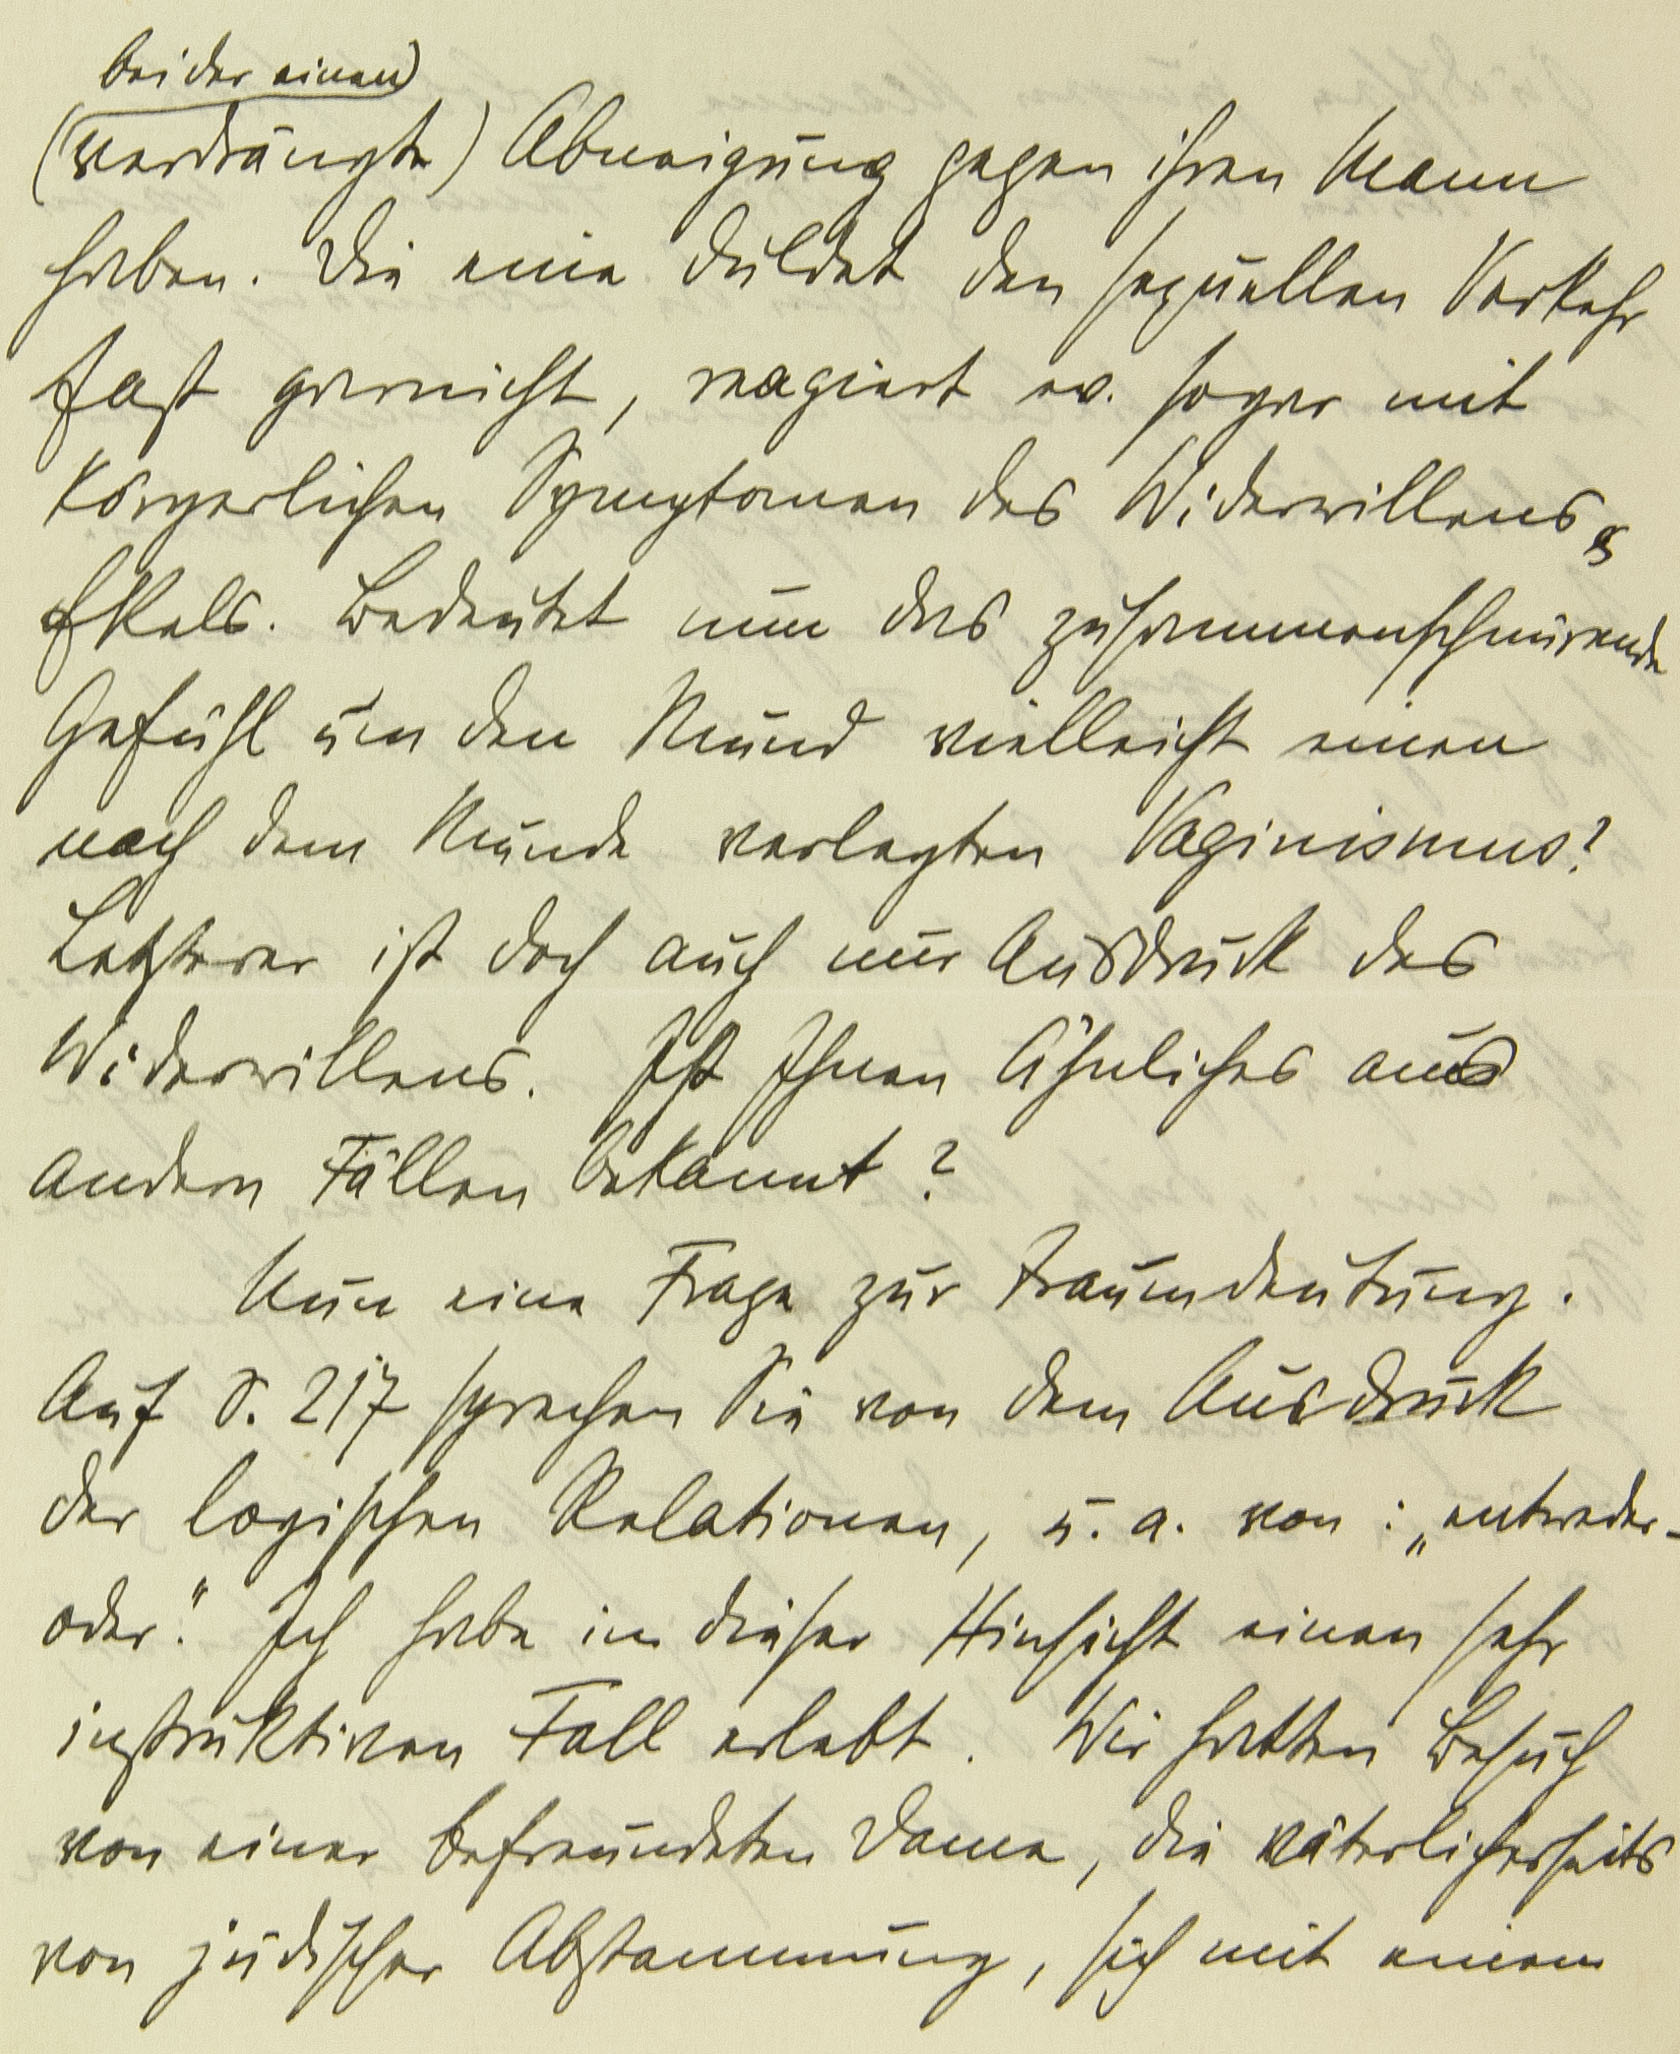 bei der einen
(verdrängte) Abneigung gegen ihren Mann
haben. Die eine duldet den sexuellen Verkehr
fast garnicht, reagiert ev. sogar mit
körperlichen Symptomen des Widerwillens,
Ekels. Bedeutet nun das zusammenschnürende
Gefühl um den Mund vielleicht einen
nach dem Munde verlegten Vaginismus?
Letzterer ist doch auch nur Ausdruck des
Widerwillens. Ist Ihnen Ähnliches aus
andern Fällen bekannt?
Nun eine Frage zur Traumdeutung.
Auf S. 217 sprechen Sie von dem Ausdruck
der logischen Relationen, u. a. von: „entweder-
oder." Ich habe in dieser Hinsicht einen sehr
instruktiven Fall erlebt. Wir hatten Besuch
von einer befreundeten Dame, die väterlicherseits
von jüdischer Abstammung, sich mit einem